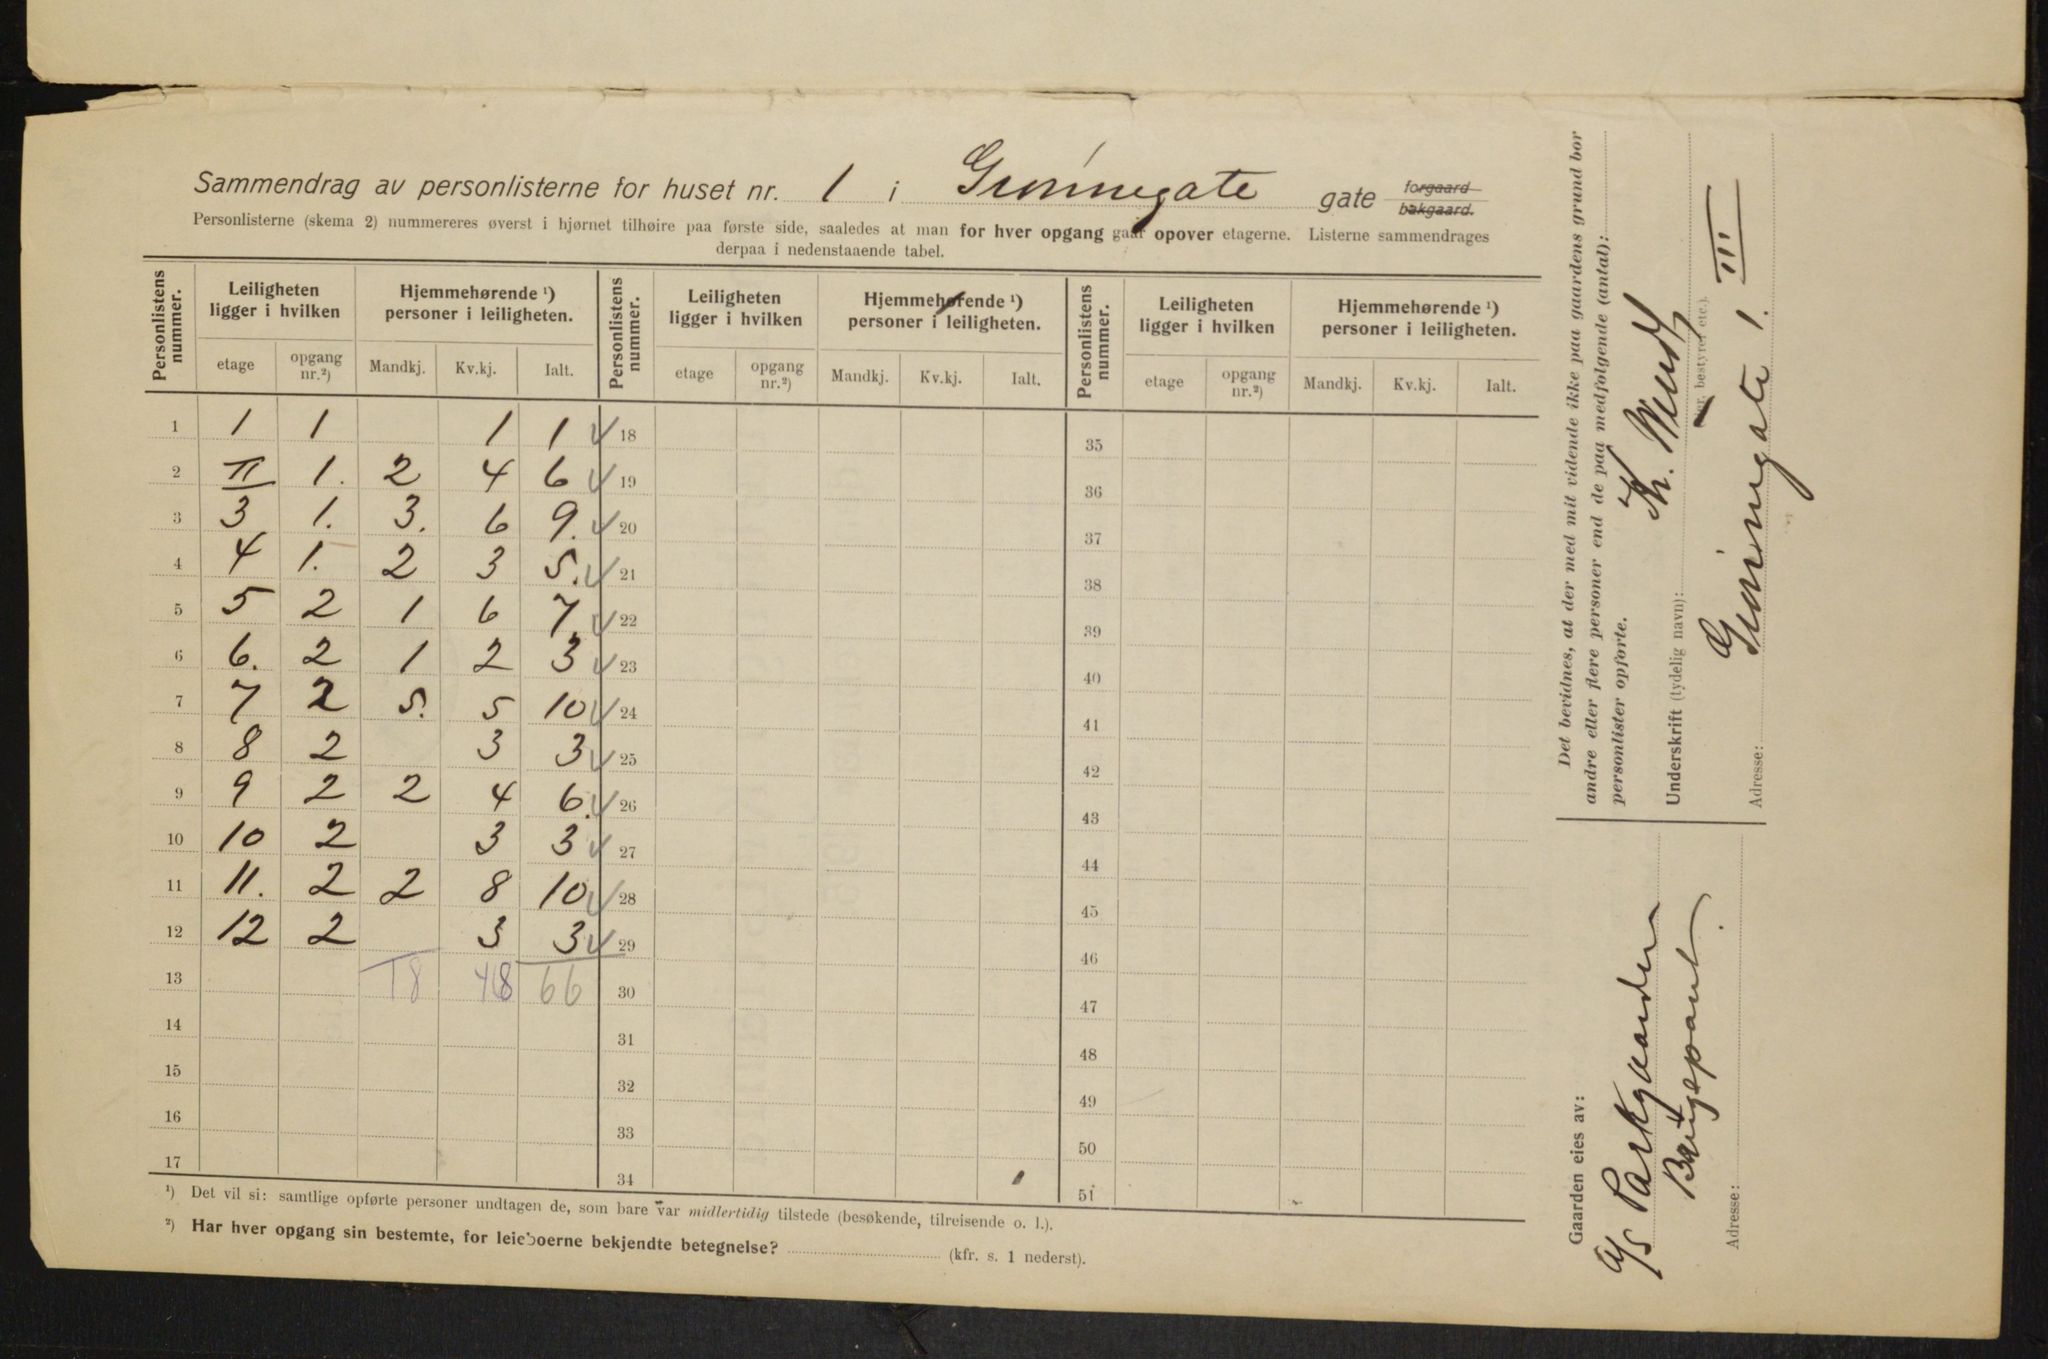 Sammendrag av personlisterne for huset nr. 1 i Grønnegate gate forgaard bakgaard.
Personlisterne (skema 2) nummereres øverst i hjørnet tilhøire paa første side, saaledes at man for hver opgang gaar opover etagerne. Listerne sammendrages
derpaa i nedenstaaende tabel.
Personlistens nummer. Leiligheten ligger i hvilken Hjemmehørende ¹) personer i leiligheten. Personlistens nummer. Leiligheten ligger i hvilken Hjemmehørende ¹) personer i leiligheten. Personlistens nummer. Leiligheten ligger i hvilken Hjemmehørende ¹) personer i leiligheten.
etage opgang nr.²) Mandkj. Kv.kj. Ialt. etage opgang nr.²) Mandkj. Kv.kj. Ialt. etage opgang nr.²) Mandkj. Kv.kj. Ialt.
1 1 1 1 1 ✓ 18 35
2 II 1. 2 4 6 ✓ 19 36
3 3 1. 3. 6 9. ✓ 20 37
4 4 1. 2 3 5. ✓ 21 38
5 5 2 1 6 7. ✓ 22 39
6 6. 2 1 2 3 ✓ 23 40
7 7 2 5. 5 10 ✓ 24 41
8 8 2 3 3 ✓ 25 42
9 9 2 2 4 6. ✓ 26 43
10 10 2 3 3 ✓ 27 44
11 11. 2 2 8 10 ✓ 28 45
12 12 2 3 3 ✓ 29 46
13 18 48 66 30 47
14 31 48
15 32 49
16 33 50
17 34 51
¹) Det vil si: samtlige opførte personer undtagen de, som bare var midlertidig tilstede (besøkende, tilreisende o. l.).
²) Har hver opgang sin bestemte, for leieboerne bekjendte betegnelse? (kfr. s. 1 nederst).
Det bevidnes, at der med mit vidende ikke paa gaardens grund bor
andre eller flere personer end de paa medfølgende (antal):
personlister opførte.
Th. Wendt
Underskrift (tydelig navn): (eier, bestyrer etc.).
Grønnegate 1. III
Adresse:
Gaarden eies av:
A/S Parkgaarden
Adresse: